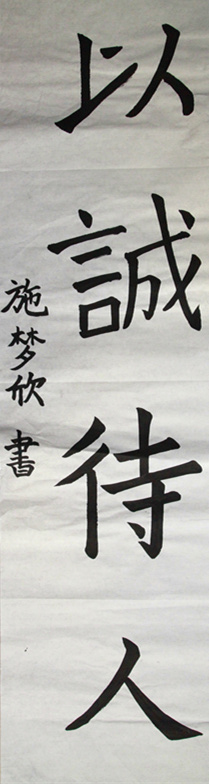 以誠待人
施梦欣書